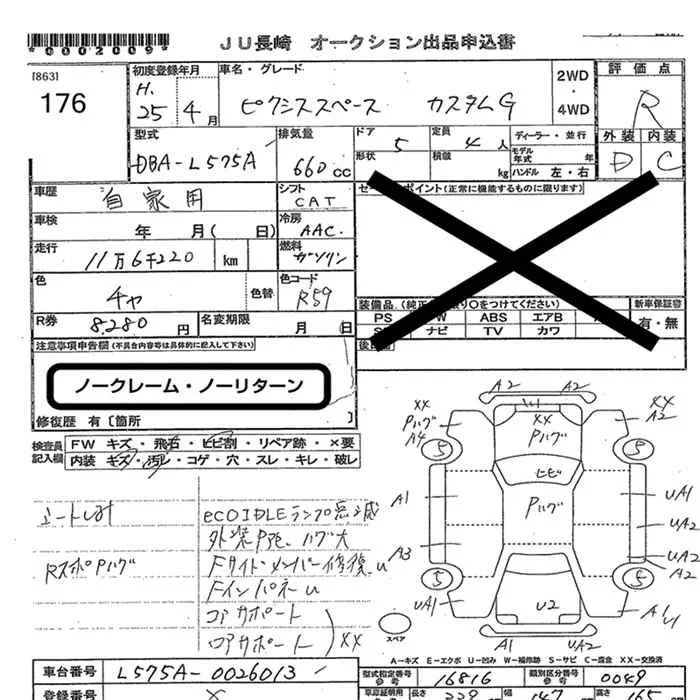 *0002009*
JU長崎 オークション出品申込書
[863]
176
初度登録年月
H.
25年 4月
車名・グレード
ピクシススペース カスタムG
2WD
・
4WD
評価点
R
外装 内装
D C
型式
DBA-L575A
排気量
660cc
ドア 5
定員 4人
ディーラー・並行
形状
積載 kg
モデル年式 年
ハンドル 左・右
車歴
自家用
シフト
CAT
ポイント(正常に機能するものに限ります)
車検 年 月( 日)
冷房
AAC
走行
11万6千220 km
燃料
ガソリン
色
チャ
色替
色コード
R59
装備品
をつけてください)
新車保証書
PS ABS エアB
有・無
ナビ TV カワ
R券 8,280円
名変期限 月 日
注意事項申告欄(不具合内容等は具体的に記入して下さい)
ノークレーム・ノーリターン
修復歴 有〔箇所 〕
検査員
記入欄
FW キズ・飛石・ヒビ割・リペア跡・×要
内装 キズ・汚レ・コゲ・穴・スレ・キレ・破レ
シートしみ
RスポPハゲ
eco IDLEランプ点滅
外装P死、ハゲ大
Fサイドメンバー修復、u
Fインパネu
コアサポート
ロアサポート
××
A2 A2
××
Pハゲ
A4
××
Pハゲ
××
A2
5 5
ヒビ
A1
Pハゲ
UA1
UA2
A3
UA2
A2
5 5
UA1
U2
A1
スペア
A1 UA2
A−キズ E−エクボ U−凹み W−補修跡 S−サビ C−腐食 ××−交換済
車台番号 L575A-0026013
型式指定番号
参考
16816
類別区分番号
参考
0049
登録番号
長さ
幅 147
高さ 165